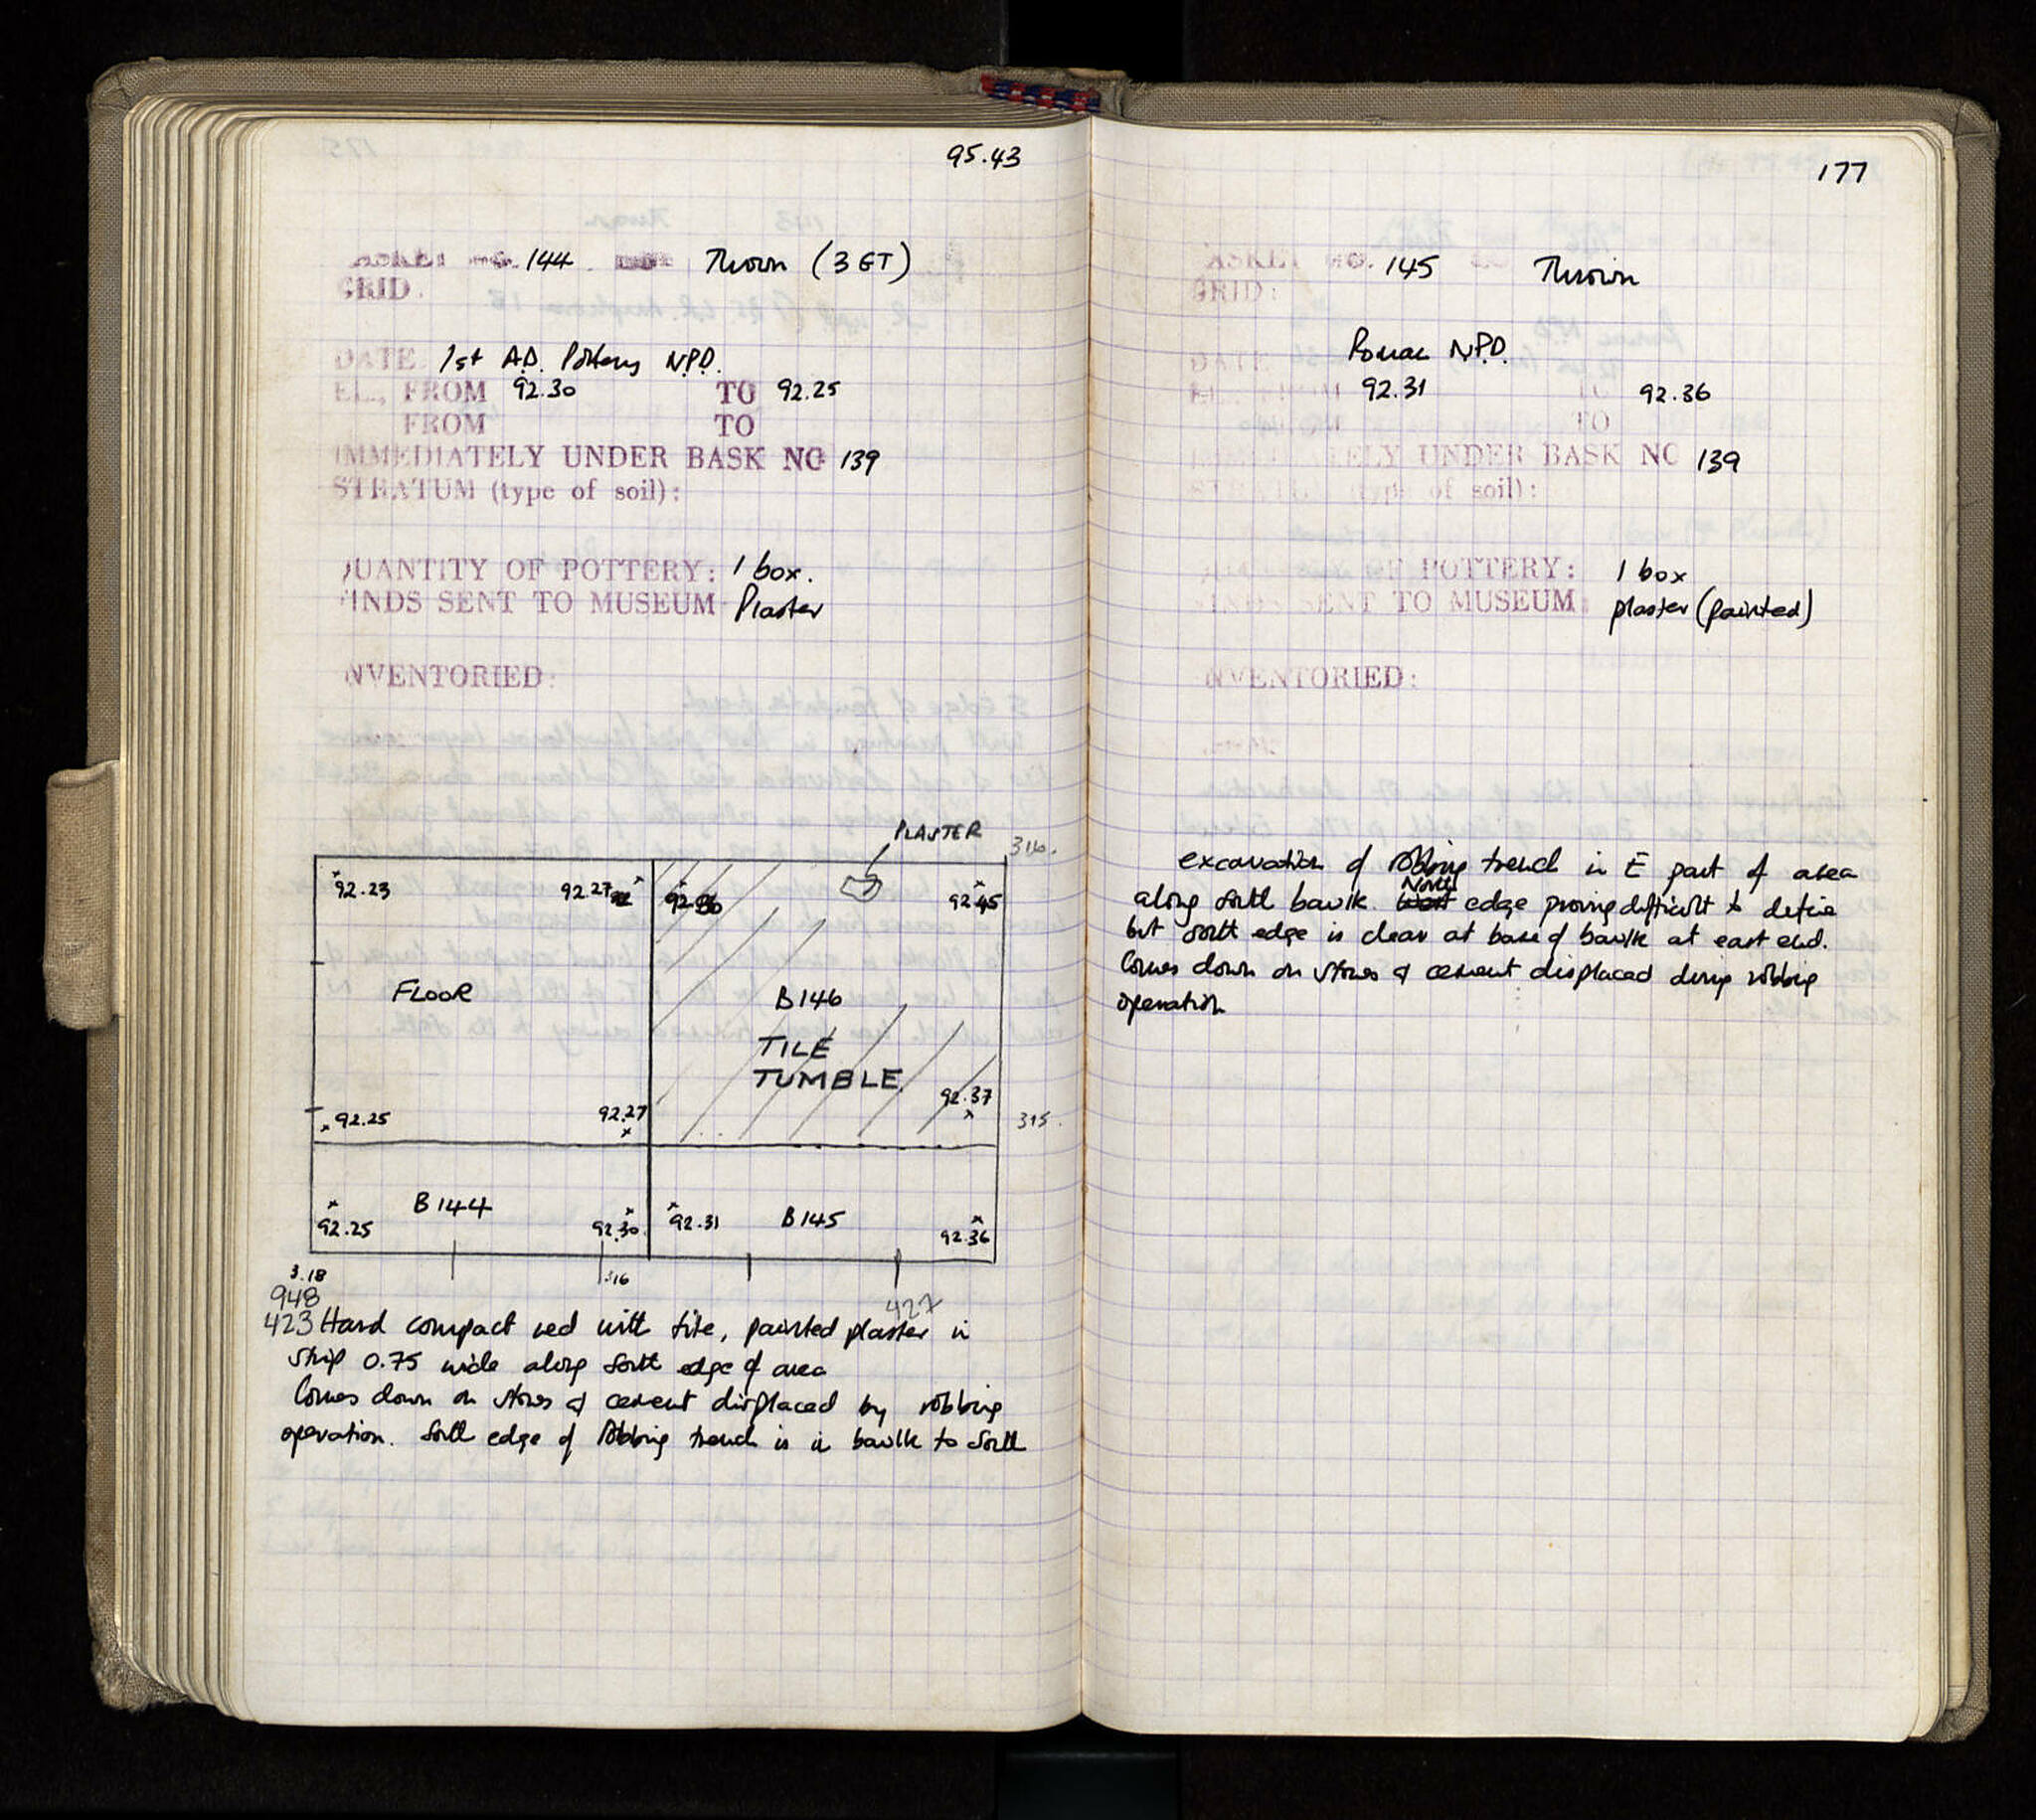 95.43
BASKET NO. 144 Thrown (3 GT)
GRID.
DATE 1st A.D. Pottery N.P.D.
EL., FROM 92.30 TO 92.25
FROM TO
IMMEDIATELY UNDER BASK NO 139
STRATUM (type of soil):
QUANTITY OF POTTERY: 1 box.
FINDS SENT TO MUSEUM Plaster
INVENTORIED:
PLASTER
316.
92.23 92.27 92.45
FLOOR
B 146
TILE
TUMBLE
92.37
92.25 92.27
315.
B 144 B 145
92.25 92.30 92.31 92.36
3.18 316
948
427
423 Hard compact red with tile, painted plaster in
strip 0.75 wide along south edge of area
Comes down on stones & cement displaced by robbing
operation. South edge of Robbing trench is in baulk to South
177
BASKET NO. 145 Thrown
GRID:
DATE Roman N.P.D.
EL., FROM 92.31 TO 92.36
FROM TO
IMMEDIATELY UNDER BASK NO 139
STRATUM (type of soil):
QUANTITY OF POTTERY: 1 box
FINDS SENT TO MUSEUM: plaster (painted)
INVENTORIED:
excavation of robbing trench in E part of area
along south baulk. North edge proving difficult to define
but south edge is clear at base of baulk at east end.
Comes down on stones & cement displaced during robbing
operation